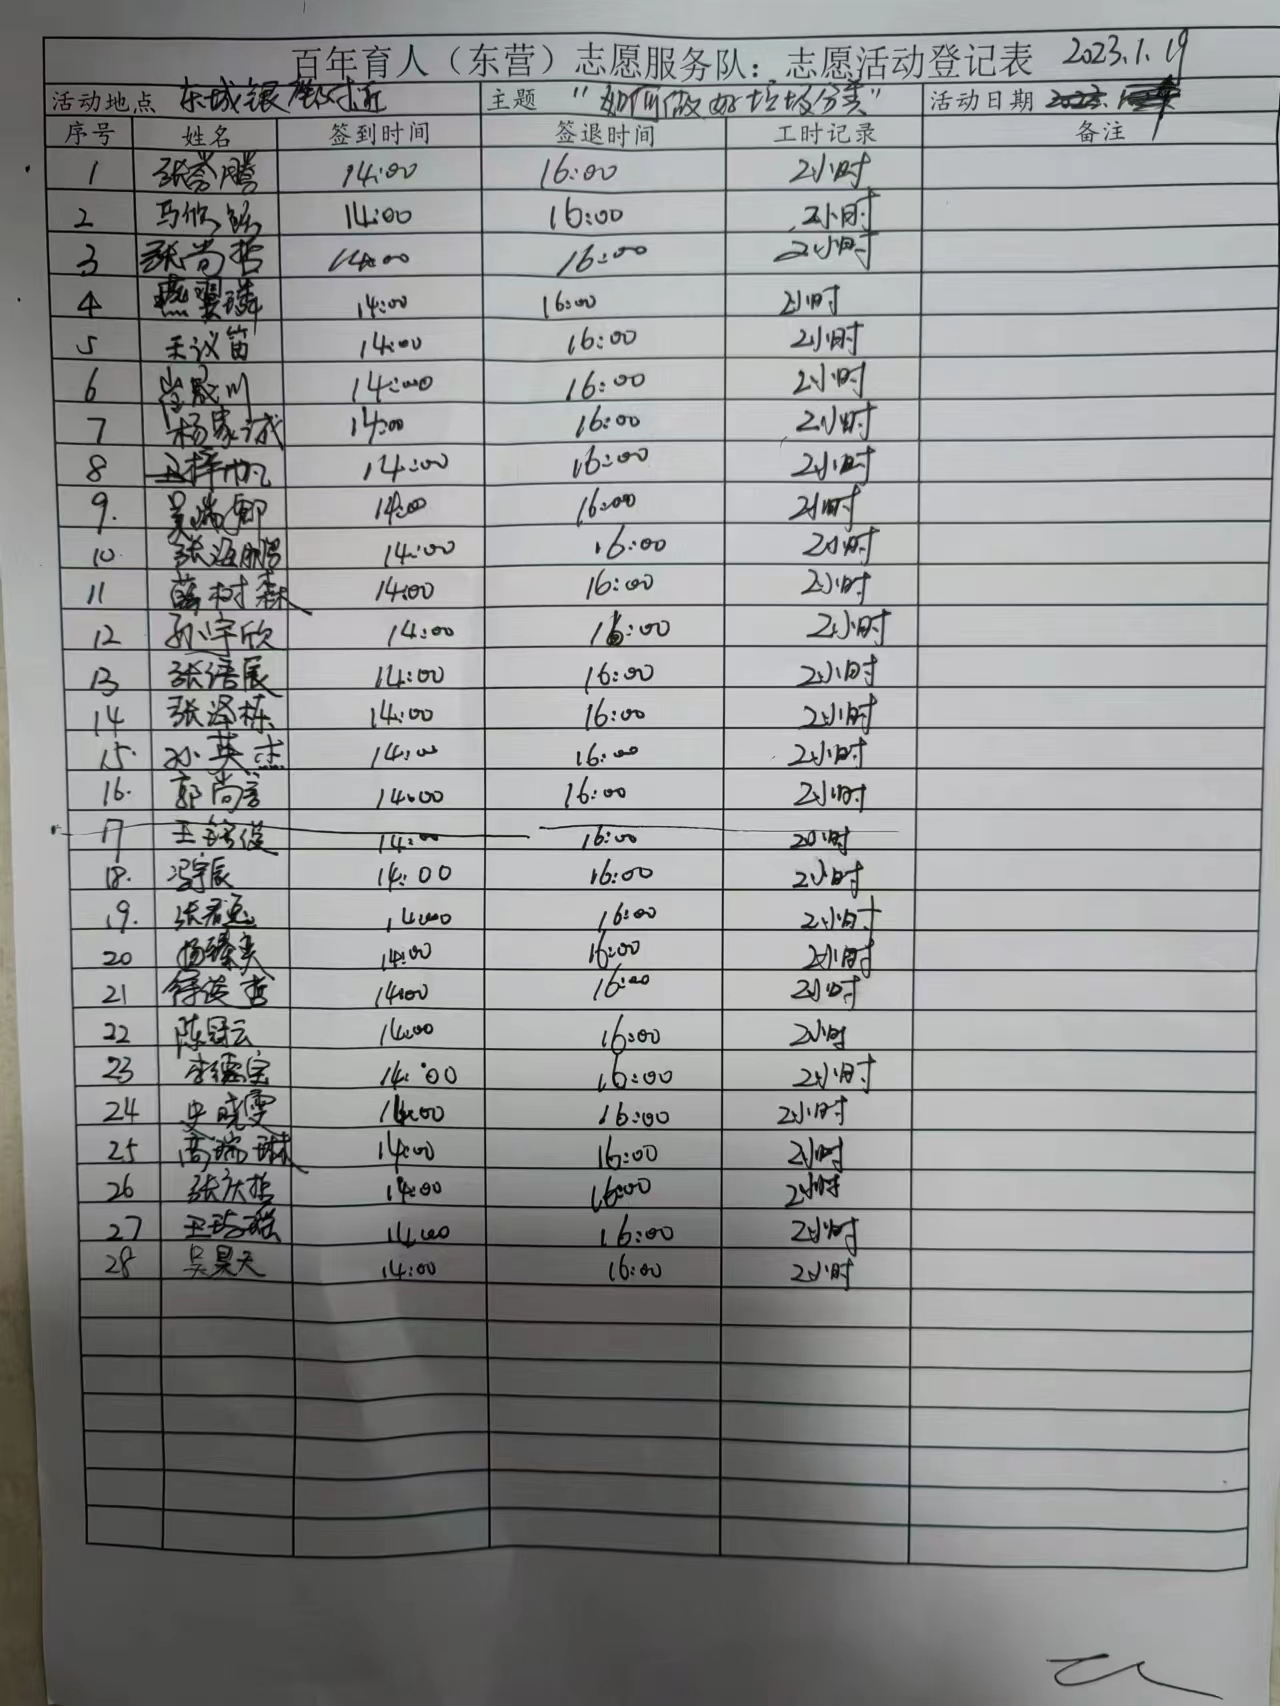 百年育人（东营）志愿服务队：志愿活动登记表 2023.1.19
活动地点 东城银座社区 主题 “如何做好垃圾分类” 活动日期
序号 姓名 签到时间 签退时间 工时记录 备注
1 张誉腾 14:00 16:00 2小时
2 马 14:00 16:00 2小时
3 张尚哲 14:00 16:00 2小时
4 燕翼璘 14:00 16:00 2小时
5 王议笛 14:00 16:00 2小时
6 14:00 16:00 2小时
7 杨家诚 14:00 16:00 2小时
8 王梓帆 14:00 16:00 2小时
9. 吴瑞卿 14:00 16:00 2小时
10 张海鹏 14:00 16:00 2小时
11 薛树森 14:00 16:00 2小时
12 孙宇欣 14:00 16:00 2小时
13 张语宸 14:00 16:00 2小时
14 张泽栋 14:00 16:00 2小时
15. 孙英杰 14:00 16:00 2小时
16. 郭尚言 14:00 16:00 2小时
17 王铭俊 14:00 16:00 2小时
18. 冯宇辰 14:00 16:00 2小时
19. 张君 14:00 16:00 2小时
20 杨臻奕 14:00 16:00 2小时
21 俊哲 14:00 16:00 2小时
22 陈冠云 14:00 16:00 2小时
23 李德宝 14:00 16:00 2小时
24 史晓雯 14:00 16:00 2小时
25 高瑞琳 14:00 16:00 2小时
26 张庆哲 14:00 16:00 2小时
27 王瑶 14:00 16:00 2小时
28 吴昊天 14:00 16:00 2小时